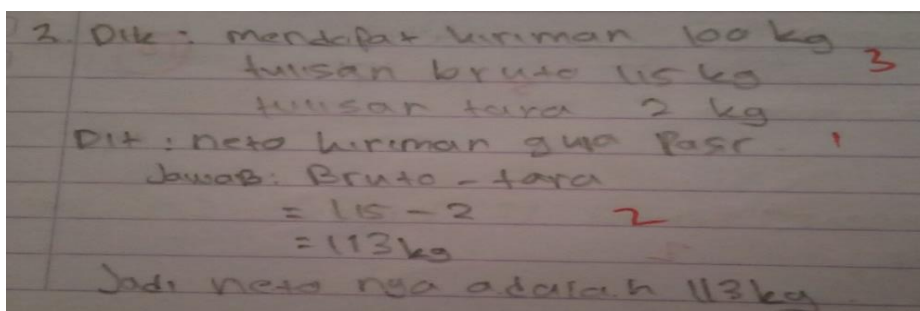 2. Dik : mendapat kiriman 100 kg
tulisan bruto 115 kg 3
tulisan tara 2 kg
Dit : neto kiriman gula Pasr 1
Jawab : Bruto - tara
= 115 - 2 2
= 113 kg
Jadi neto nya adalah 113 kg.